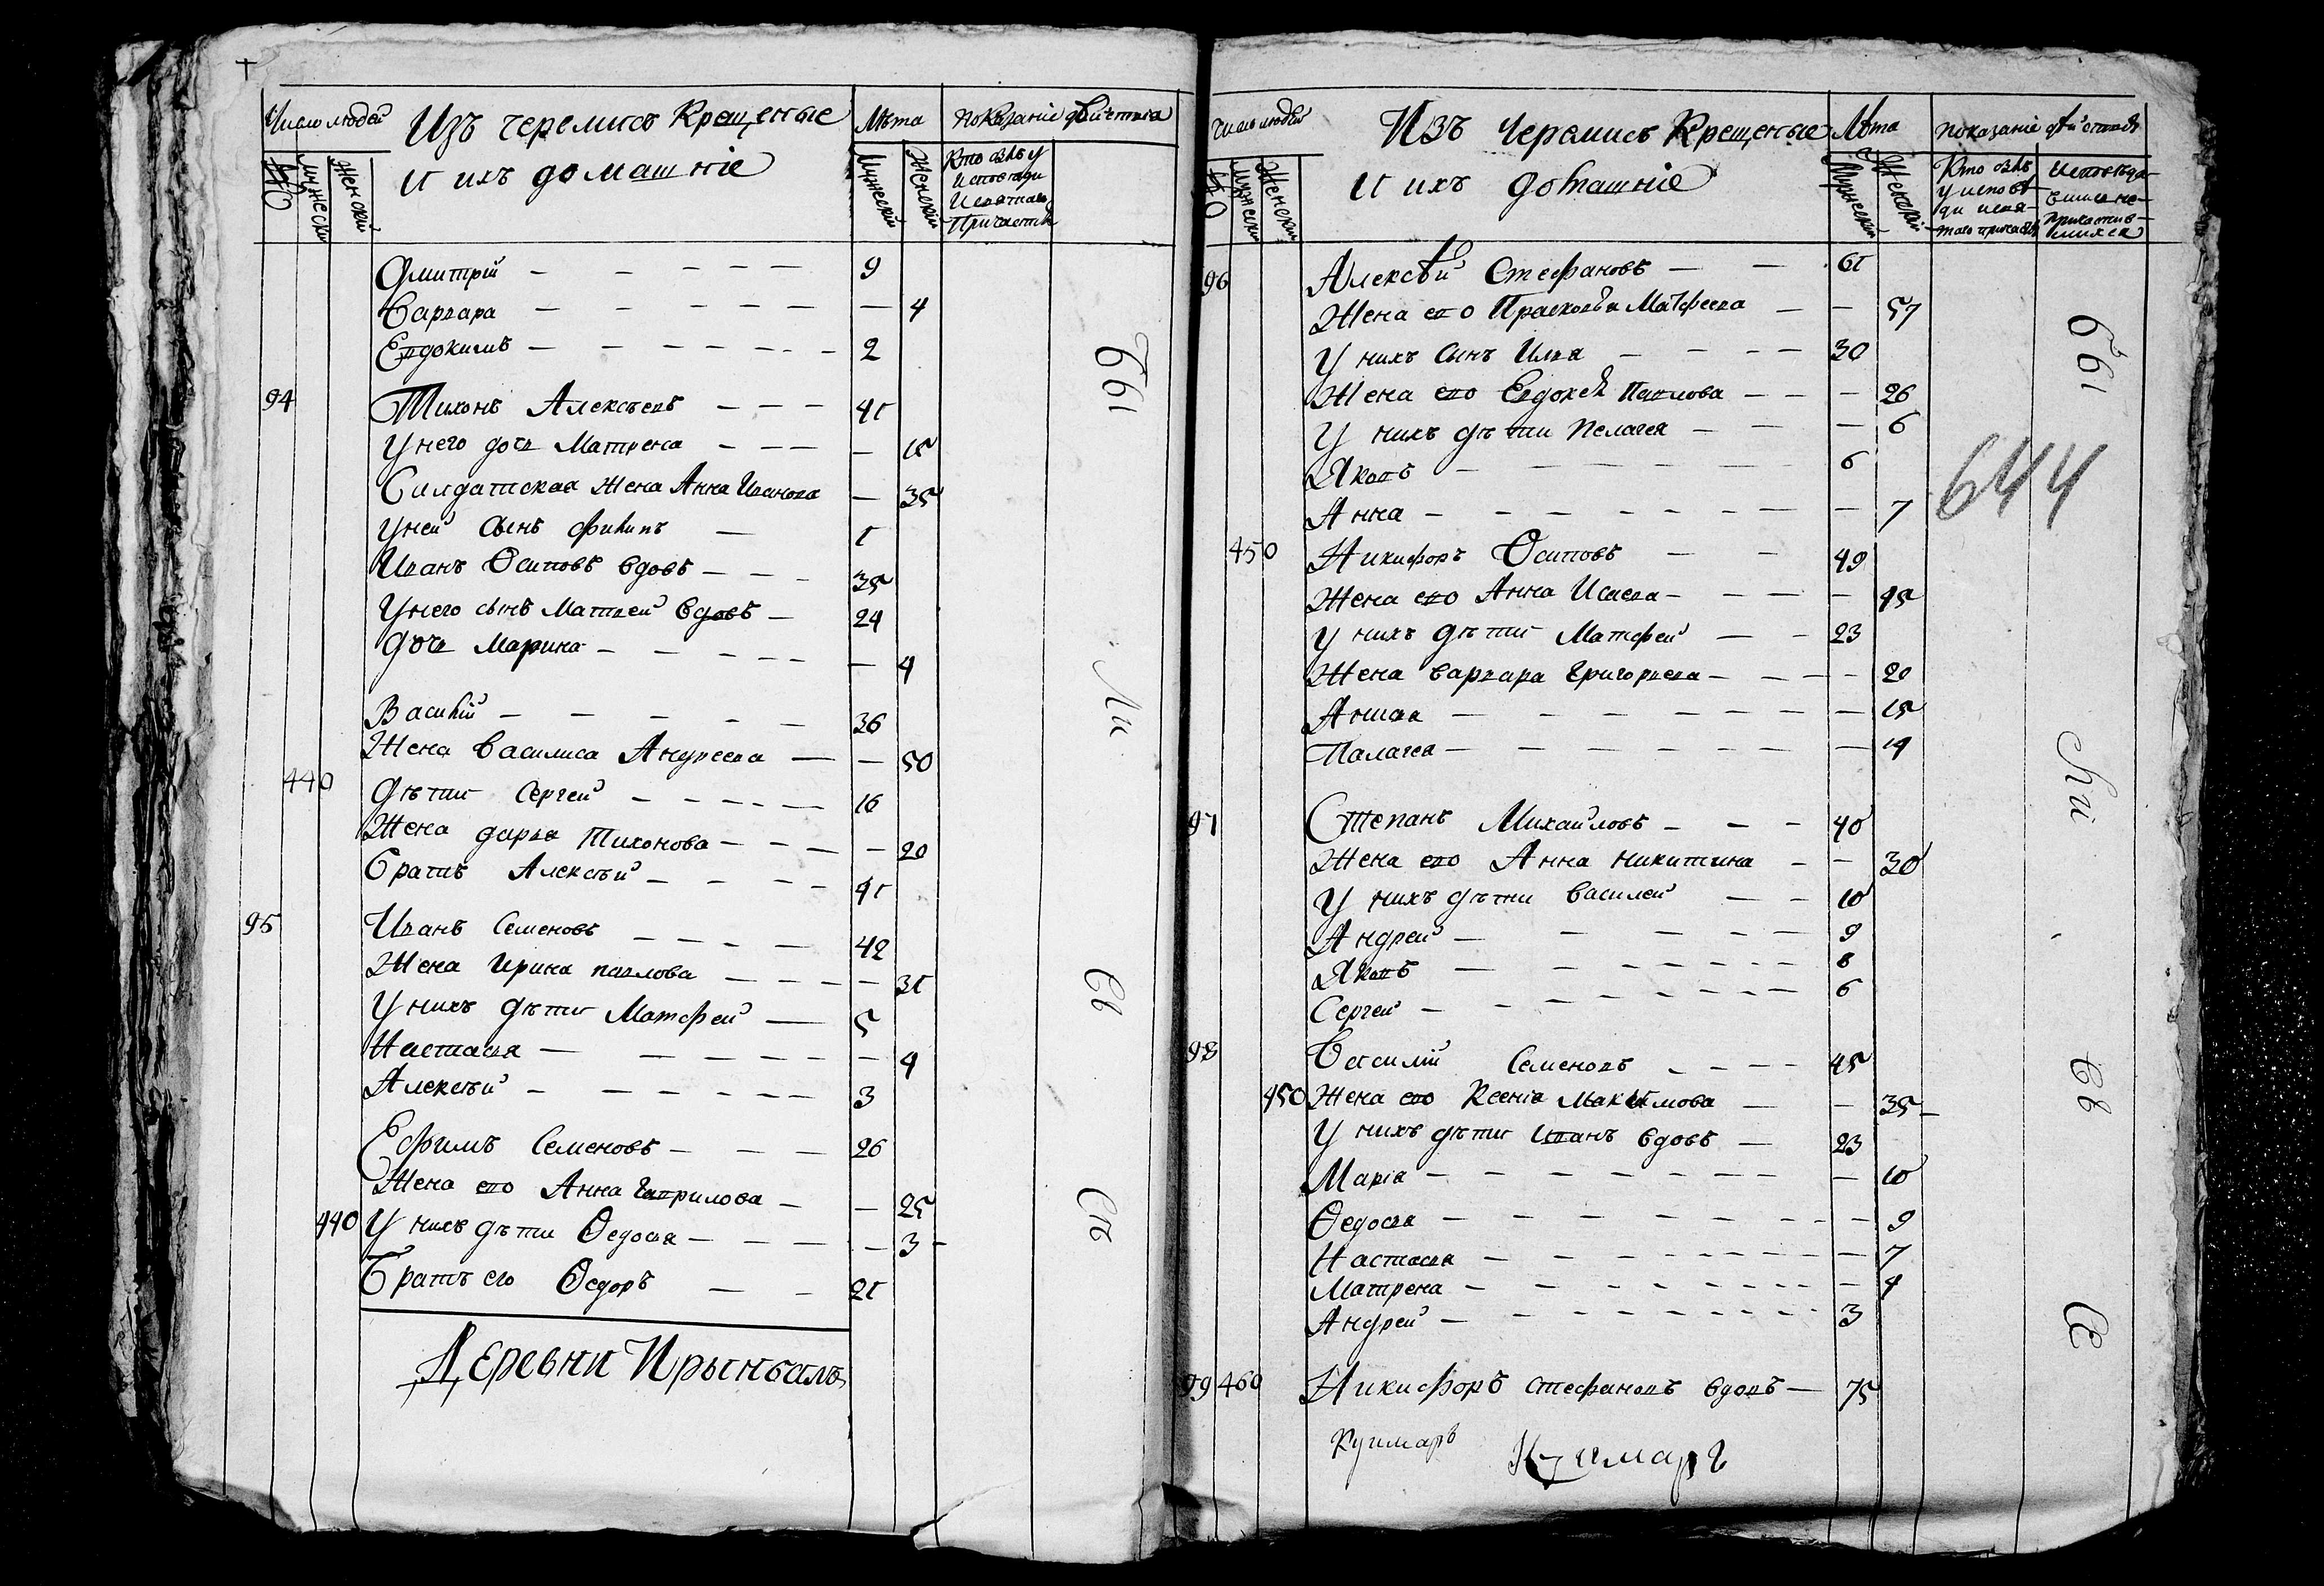 Число людей
Изъ черемисъ Крещеные
и ихъ домашніе
Лѣта
показаніе дѣйства
Мужескій
Женскій
Мужескій
Женскій
Кто былъ у
Исповѣди
И святаго
Причастія
Дмитрій — 9
Варвара — 4
Евдокимъ — 2
94 Тихонъ Алексѣевъ — 41
У него дочь Матрена — 15
Салдатская жена Анна Иванова — 35
У ней сынъ Филипъ — 1
Иванъ Осиповъ вдовъ — 35
У него сынъ Матвей вдовъ — 24
дочь Марина — 4
Василій — 36
Жена Василиса Андреева — 50
440 дѣти Сергей — 16
Жена дарья Тихонова — 20
братъ Алексѣй — 41
95 Иванъ Семеновъ — 42
Жена Ирина павлова — 31
У нихъ дѣти Матфей — 5
Настасья — 4
Алексѣй — 3
Ефимъ Семеновъ — 26
Жена его Анна Гаврилова — 25
440 У нихъ дѣти Ѳедосья — 3
Братъ его Ѳедоръ — 21
Деревни Ирыньвалъ
Число людей
Изъ Черемисъ Крещеные
и ихъ домашніе
Лѣта
показаніе дѣйства
Мужескій
Женскій
Мужескій
Женскій
Кто былъ
у исповѣ-
ди и свя-
таго причастія
Исповѣда-
вшихся не-
причастив-
шихся
96 Алексѣй Стефановъ — 61
Жена его Прасковья Матфеева — 57
У нихъ сынъ Илья — 30
Жена его Евдокея Павлова — 26
У нихъ дѣти Пелагея — 6
Яковъ — 6
Анна — 7
644
450 Никифоръ Осиповъ — 49
Жена его Анна Исаева — 45
У нихъ дѣти Матфей — 23
Жена варвара Григорьева — 20
Анная — 15
Палагея — 14
97 Степанъ Михайловъ — 40
Жена его Анна никитина — 30
У нихъ дѣти Василей — 10
Андрей — 9
Яковъ — 8
Сергей — 6
98 Василій Семеновъ — 45
450 Жена его Ксенія Максимова — 35
У нихъ дѣти Иванъ вдовъ — 23
Марія — 10
Ѳедосья — 9
Настасья — 7
Матрена — 4
Андрей — 3
99 460 Никифоръ стефановъ вдовъ — 75
Кушмаръ